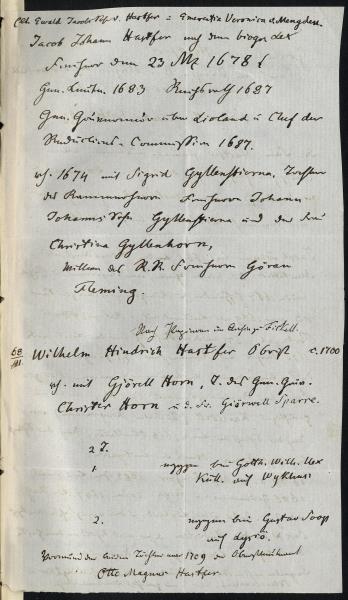 Col. Ewald Jacobs Sohn v. Hastfer = Emerentia Veronica v. Mengden.
Jacob Johann Hastfer nach dem biogr. Lex
Freiherr den 23 Mz 1678 †
Gen. Lieutn. 1683 Reichsrath 1687
Gen. Gouverneur über Livland u Chef der
Reductions-Commission 1687.
vh. 1674 mit Sigrid Gyllenstierna, Tochter
des Kammerherrn Freiherrn Johann
Johanns Sohn Gyllenstierna und der Frau
Christina Gyllenhorn,
Wittwe des R. R. Freiherrn Göran
Fleming.
Nach
68
III. Wilhelm Hindrich Hastfer Obrist c. 1700
vh. mit Gjörell Horn, T. des Gen. Guv.
Christer Horn u. d. Fr. Giörwell Sparre.
2 T.
1. bei Gotth. Wilh. Uex
Küll auf
2. bei Gustav Soop
auf
Vormund der beiden Töchter war 1709 der Oberstlieutnant
Otto Magnus Hastfer